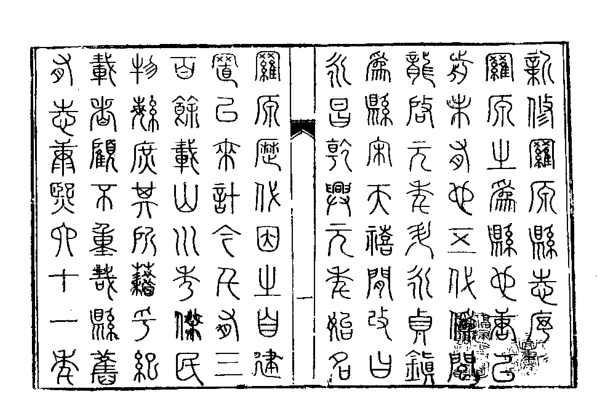 新修羅原縣志序
羅原之為縣也唐已
前未有也五代僞閩
龍啟元年升永貞鎮
為縣宋天禧間改曰
永昌乾興元年始名
羅原歷代因之自建
置已來計今凡有三
百餘載山川秀傑民
物繁庶其所藉乎紀
載者顧不重哉縣舊
有志康熙六十一年
一